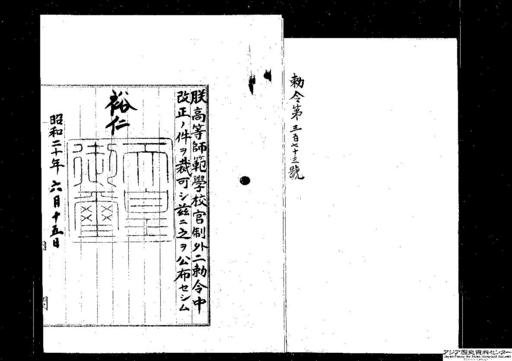 勅令第三百七十三號
朕高等師範學校官制外二勅令中
改正ノ件ヲ裁可シ茲ニ之ヲ公布セシム
裕仁
天皇
御璽
昭和二十年六月十五日
アジア歴史資料センター